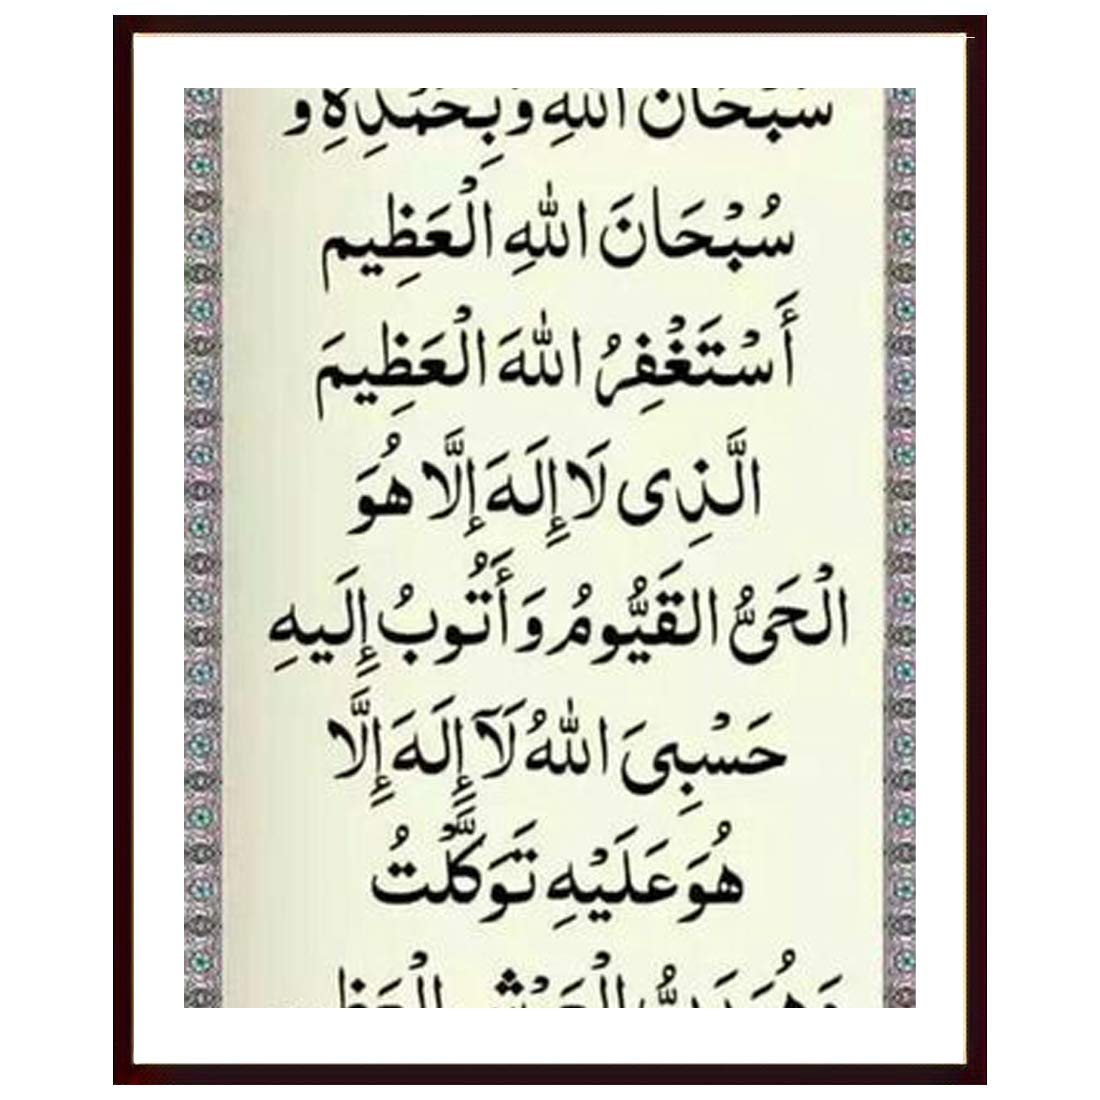 سُبْحَان اللهِ وَبِحَمْدِهِ و
سُبْحَانَ اللهِ الْعَظِيم
أَسْتَغْفِرُ اللهَ الْعَظِيمَ
الَّذِى لَا إِلَهَ إِلَّا هُوَ
الْحَىُّ القَيُّومُ وَأَتُوبُ إِلَيهِ
حَسْبِىَ اللهُ لَآ إِلَهَ إِلَّا
هُوَ عَلَيْهِ تَوَكَّلتُ
وَهُوَ رَبُّ الْعَرْشِ الْعَظِيم